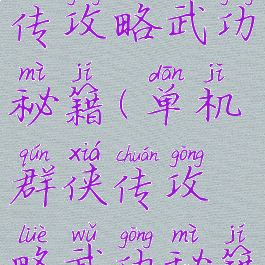 传攻略武功
mì jí dān jī
秘籍(单机
qún xiá chuán gōng
群侠传攻
lüè wǔ gōng mì jí
略武功秘籍